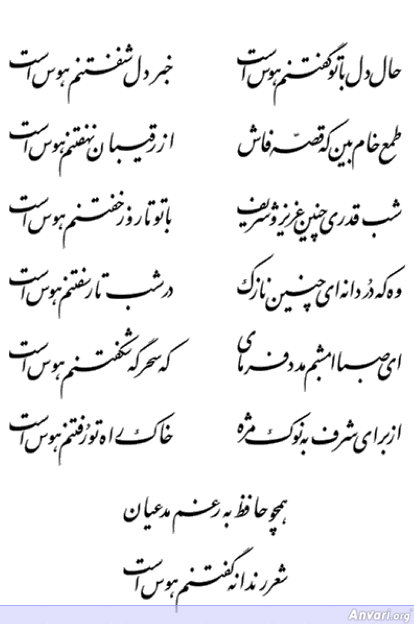 حال دل با تو گفتنم هوس است خبر دل شفتنم هوس است
طمع خام بین که قصّه فاش از رقیبان نهفتنم هوس است
شب قدری چنین عزیز و شریف با تو تا روز خفتنم هوس است
وه که دُردانه‌ای چنین نازک در شب تار سفتنم هوس است
ای صبا امشبم مدد فرمای که سحرگه شکفتنم هوس است
از برای شرف به نوک مژه خاک راه تو رُفتنم هوس است
همچو حافظ به رغم مدعیان
شعر رندانه گفتنم هوس است
Anvari.org